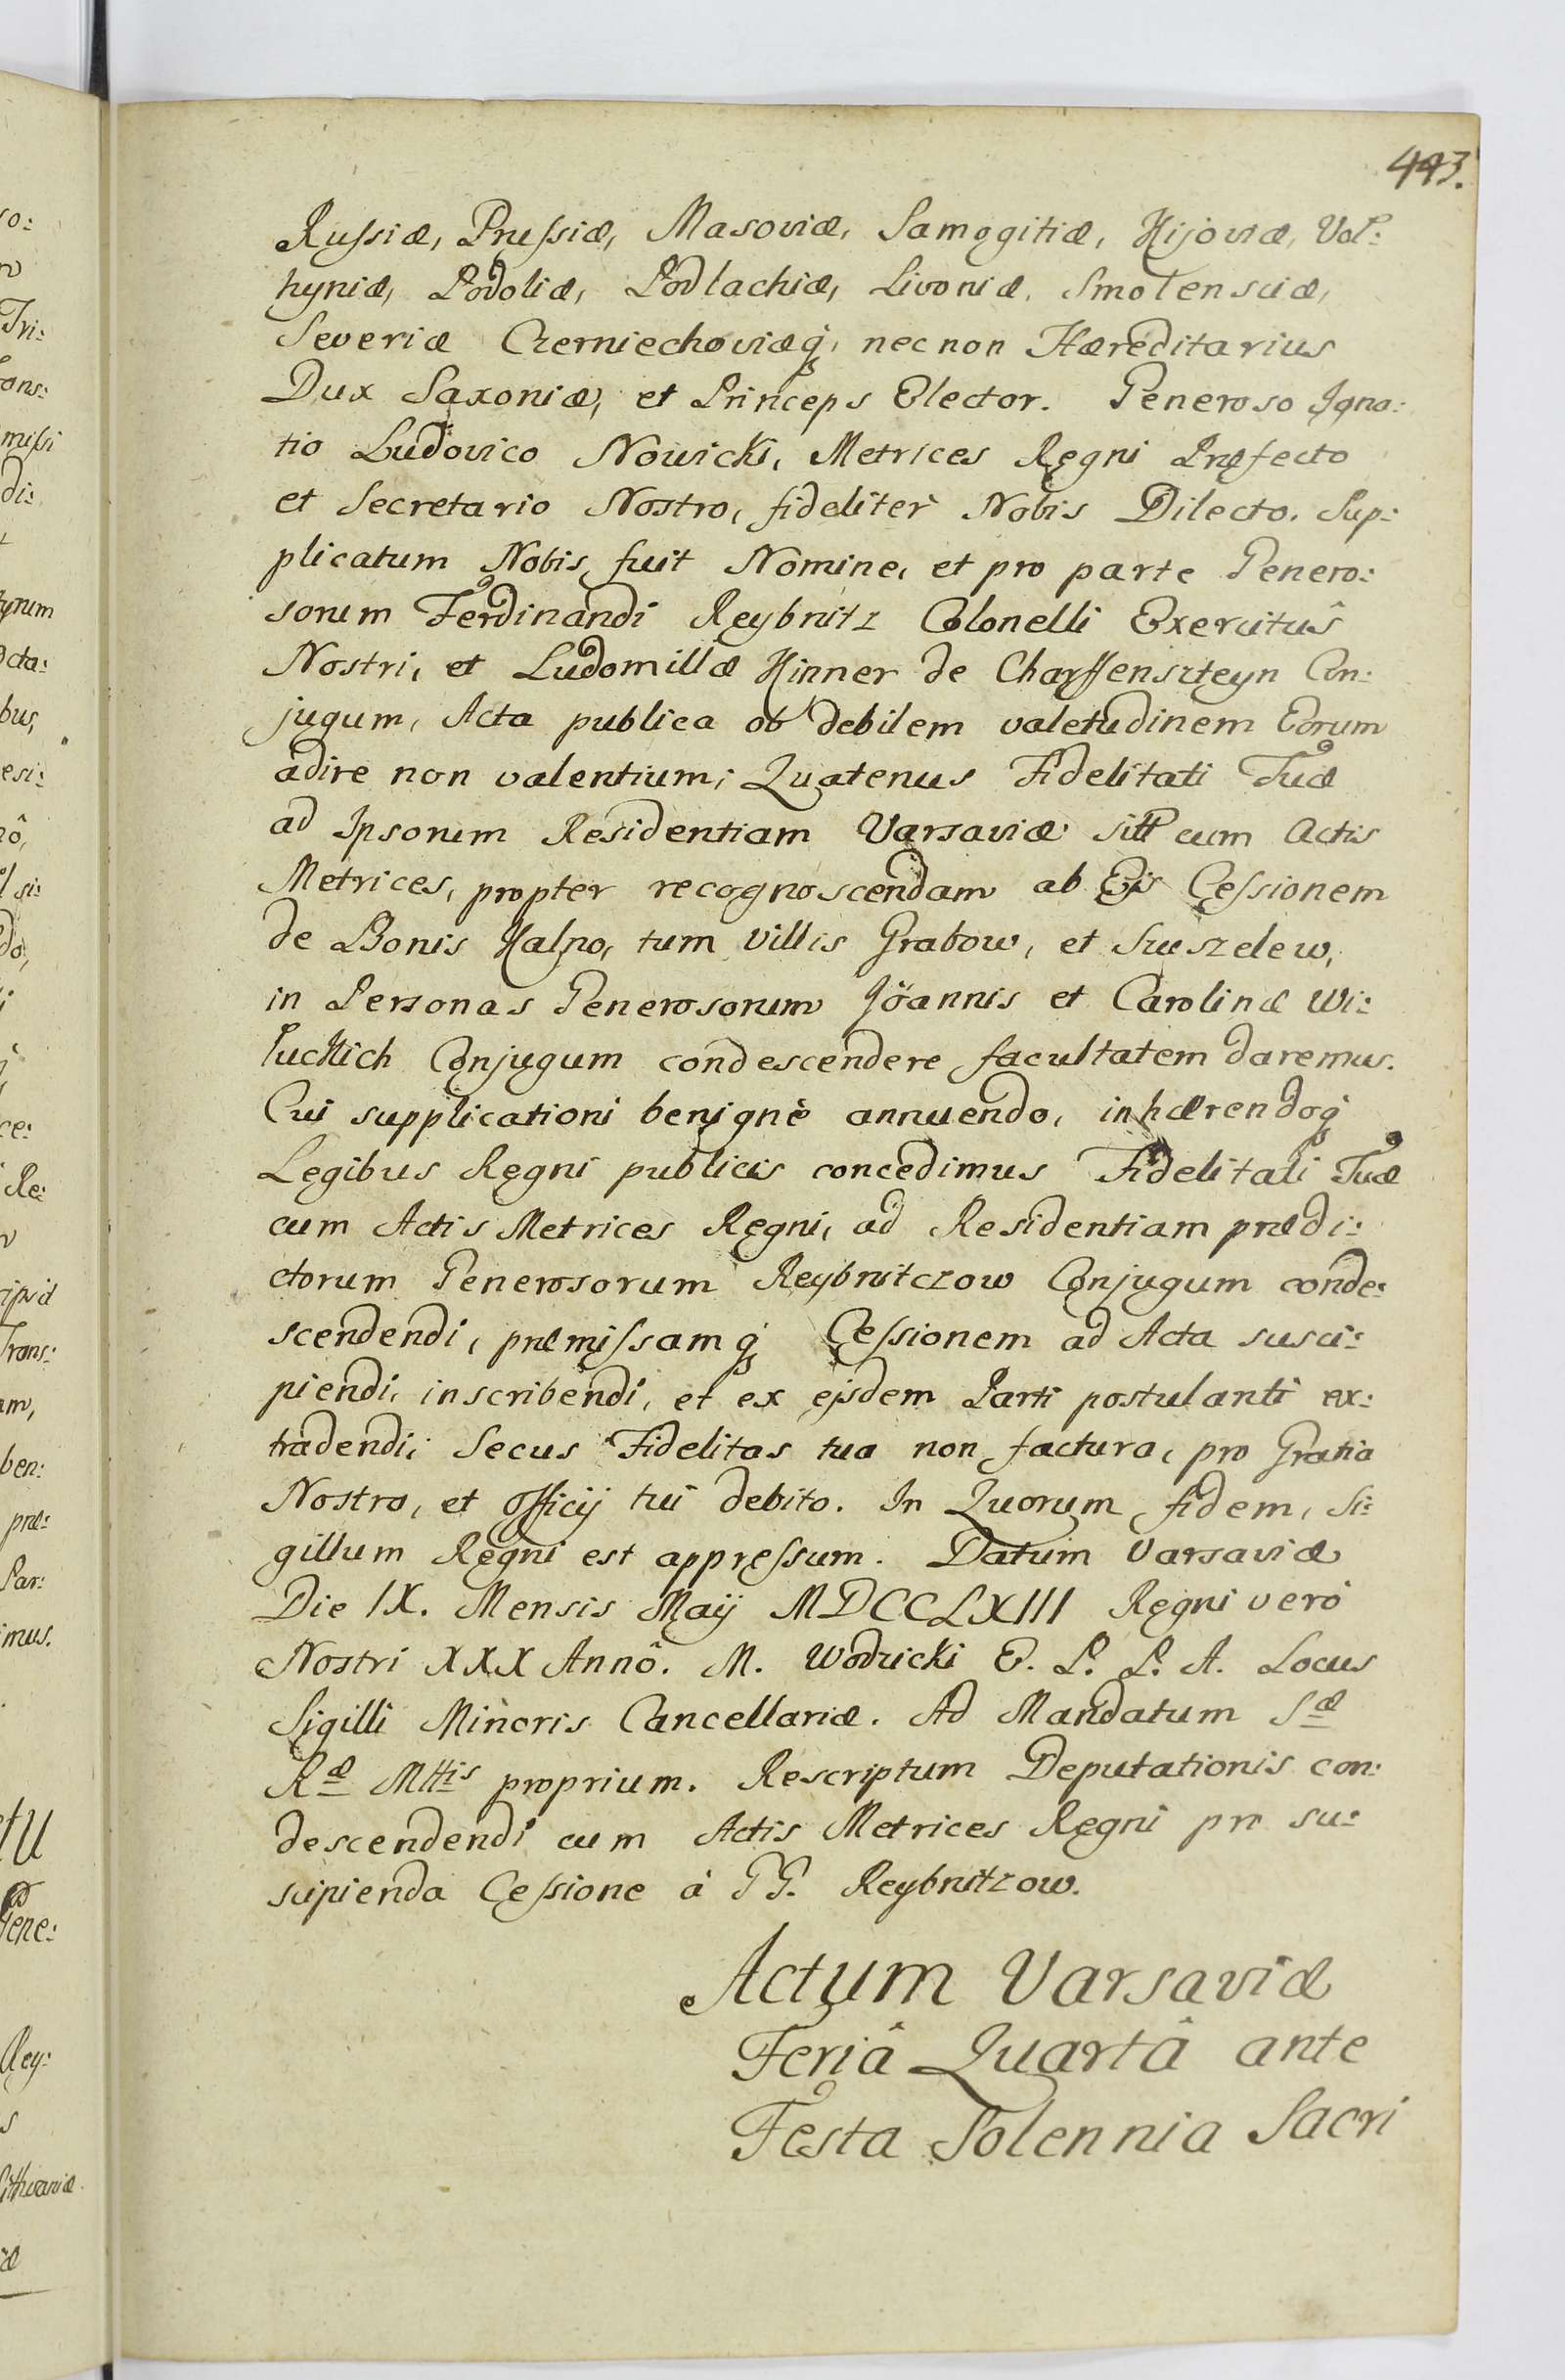 443.
Russiæ, Prussiæ, Masoviæ, Samogitiæ, Kijoviæ, Vol:
hyniæ, Podoliæ, Podlachiæ, Livoniæ, Smolensciæ,
Severiæ Czerniechoviæq́, necnon Hæreditarius
Dux Saxoniæ, et Princeps Elector. Generoso Igna:
tio Ludovico Nowicki, Metrices Regni Præfecto
et Secretario Nostro, fideliter Nobis Dilecto. Sup:
plicatum Nobis fuit Nomine, et pro parte Genero:
sorum Ferdinandi Reybnitz Colonelli Exercitûs
Nostri, et Ludomillæ Hinner de Charffenszteyn Con:
jugum, Acta publica ob debilem valetudinem Eorum
adire non valentium; Quatenus Fidelitati Tuæ
ad Ipsorum Residentiam Varsaviæ cum Actis
Metrices, propter recognoscendam ab Eis Cessionem
de Bonis Kalno, tum Villis Grabow, et Suszelew,
in Personas Generosorum Jöannis et Carolinæ Wi:
luckich Conjugum condescendere facultatem daremus.
Cui supplicationi benignè annuendo, inhærendoq́
Legibus Regni publicis concedimus Fidelitati Tuæ
cum Actis Metrices Regni, ad Residentiam prædi:
ctorum Generosorum Reybnitczow Conjugum conde:
scendendi, præmissamq́ Cessionem ad Acta susci:
piendi, inscribendi, et ex ejsdem Parti postulanti ex:
tradendi; Secus Fidelitas tua non factura, pro Gratia
Nostra, et Officij tui debito. In Quorum fidem, Si:
gillum Regni est appressum. Datum Varsaviæ
Die IX. Mensis Maij MDCCLXIII Regni verò
Nostri XXX Annô. M. Wodzicki E. P. P. A. Locus
Sigilli Minoris Cancellariæ. Ad Mandatum Sæ
Ræ Mttis proprium. Rescriptum Deputationis con:
descendendi cum Actis Metrices Regni pro su:
scipienda Cessione à GG. Reybnitzow.
Actum Varsaviæ
Feriâ Quartâ ante
Festa Solennia Sacri